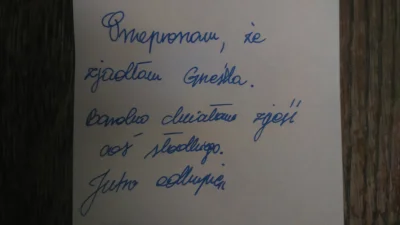 Przepraszam, że
zjadłam Grześka.
Bardzo chciałam zjeść
coś słodkiego.
Jutro odkupię